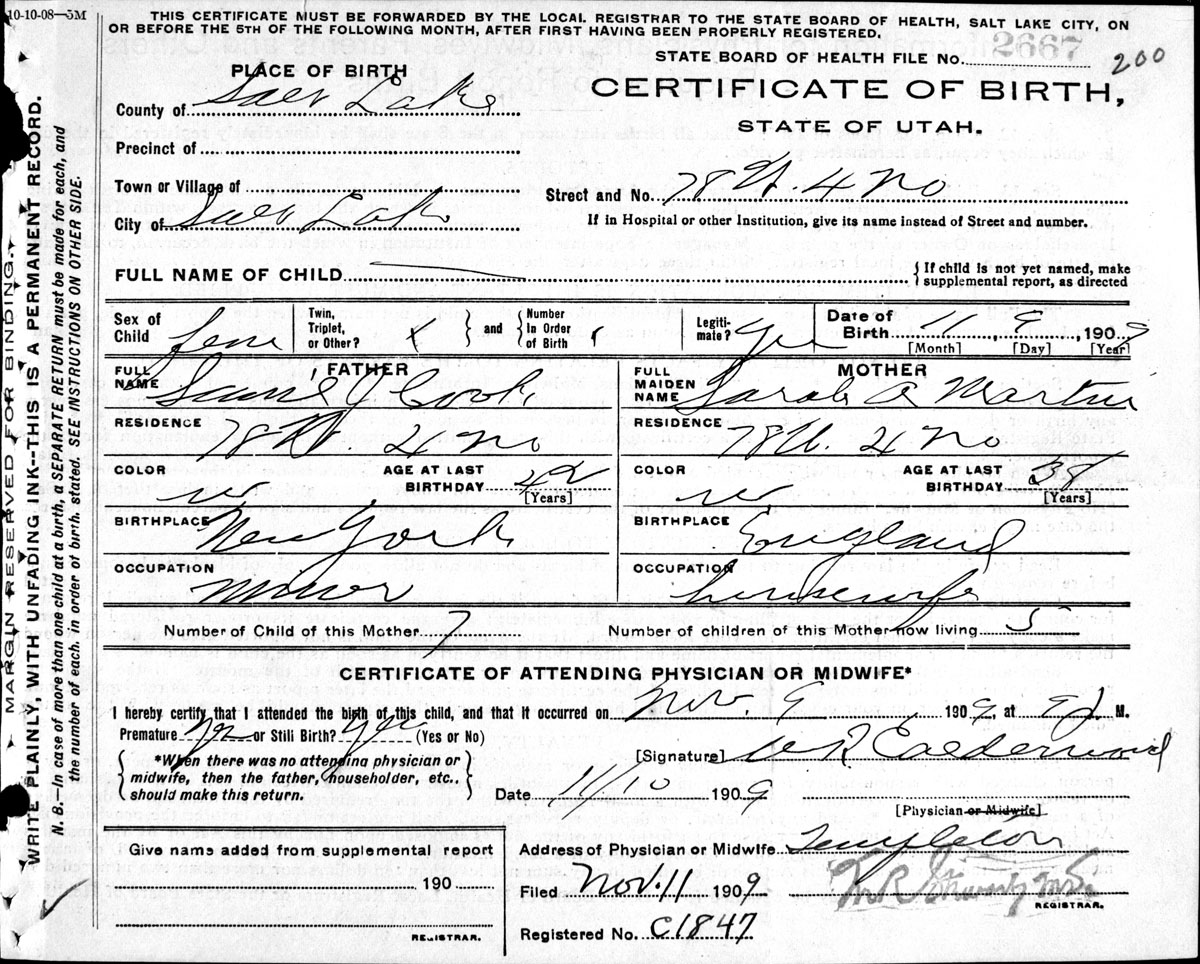 10-10-08—5M
THIS CERTIFICATE MUST BE FORWARDED BY THE LOCAL REGISTRAR TO THE STATE BOARD OF HEALTH, SALT LAKE CITY, ON
OR BEFORE THE 5TH OF THE FOLLOWING MONTH, AFTER FIRST HAVING BEEN PROPERLY REGISTERED.
STATE BOARD OF HEALTH FILE No. 2667
200
PLACE OF BIRTH
CERTIFICATE OF BIRTH,
STATE OF UTAH.
County of Salt Lake
Precinct of
Town or Village of
Street and No. 78 W. 4 No
City of Salt Lake
If in Hospital or other Institution, give its name instead of Street and number.
FULL NAME OF CHILD
{ If child is not yet named, make
supplemental report, as directed
Sex of Child Fem
Twin, Triplet, or Other? x } and { Number In Order of Birth 1
Legitimate? Yes
Date of Birth 11, 9, 1909
[Month] [Day] [Year]
FATHER
FULL NAME Sam'l J Cook
RESIDENCE 78 W. 4 No
COLOR w
AGE AT LAST BIRTHDAY 42
[Years]
BIRTHPLACE New York
OCCUPATION Miner
MOTHER
FULL MAIDEN NAME Sarah A Martin
RESIDENCE 78 W. 4 No
COLOR w
AGE AT LAST BIRTHDAY 38
[Years]
BIRTHPLACE England
OCCUPATION housewife
Number of Child of this Mother 7
Number of children of this Mother now living 5
CERTIFICATE OF ATTENDING PHYSICIAN OR MIDWIFE*
I hereby certify that I attended the birth of this child, and that it occurred on Nov. 9 1909, at M.
Premature Yes or Still Birth? Yes (Yes or No)
*When there was no attending physician or
midwife, then the father, householder, etc.,
should make this return.
[Signature] Calderwood
Date 11/10 1909
[Physician or Midwife]
Give name added from supplemental report
190
REGISTRAR.
Address of Physician or Midwife Templeton
Filed Nov. 11 1909
REGISTRAR.
Registered No. C1847
MARGIN RESERVED FOR BINDING.
WRITE PLAINLY, WITH UNFADING INK--THIS IS A PERMANENT RECORD.
N. B.—In case of more than one child at a birth, a SEPARATE RETURN must be made for each, and
the number of each, in order of birth, stated. SEE INSTRUCTIONS ON OTHER SIDE.